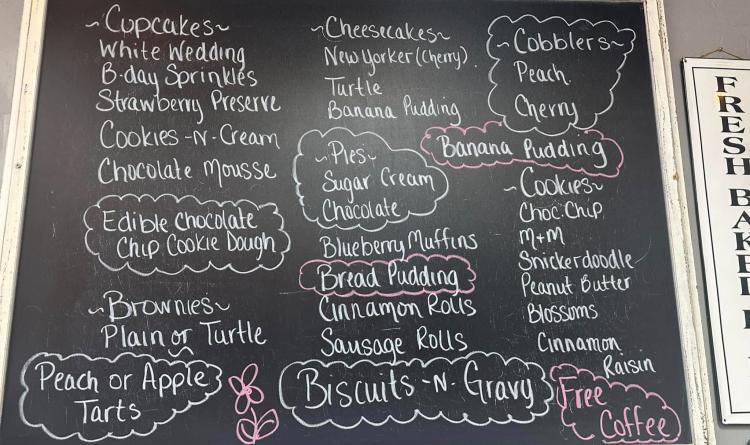 ~Cupcakes~
White Wedding
B-day Sprinkles
Strawberry Preserve
Cookies-N-Cream
Chocolate Mousse
Edible Chocolate
Chip Cookie Dough
~Brownies~
Plain or Turtle
Peach or Apple
Tarts
~Cheesecakes~
New Yorker (Cherry)
Turtle
Banana Pudding
~Pies~
Sugar Cream
Chocolate
Blueberry Muffins
Bread Pudding
Cinnamon Rolls
Sausage Rolls
Biscuits-N-Gravy
~Cobblers~
Peach
Cherry
Banana Pudding
~Cookies~
Choc. Chip
M+M
Snickerdoodle
Peanut Butter
Blossoms
Cinnamon
Raisin
Free
Coffee
FRESH